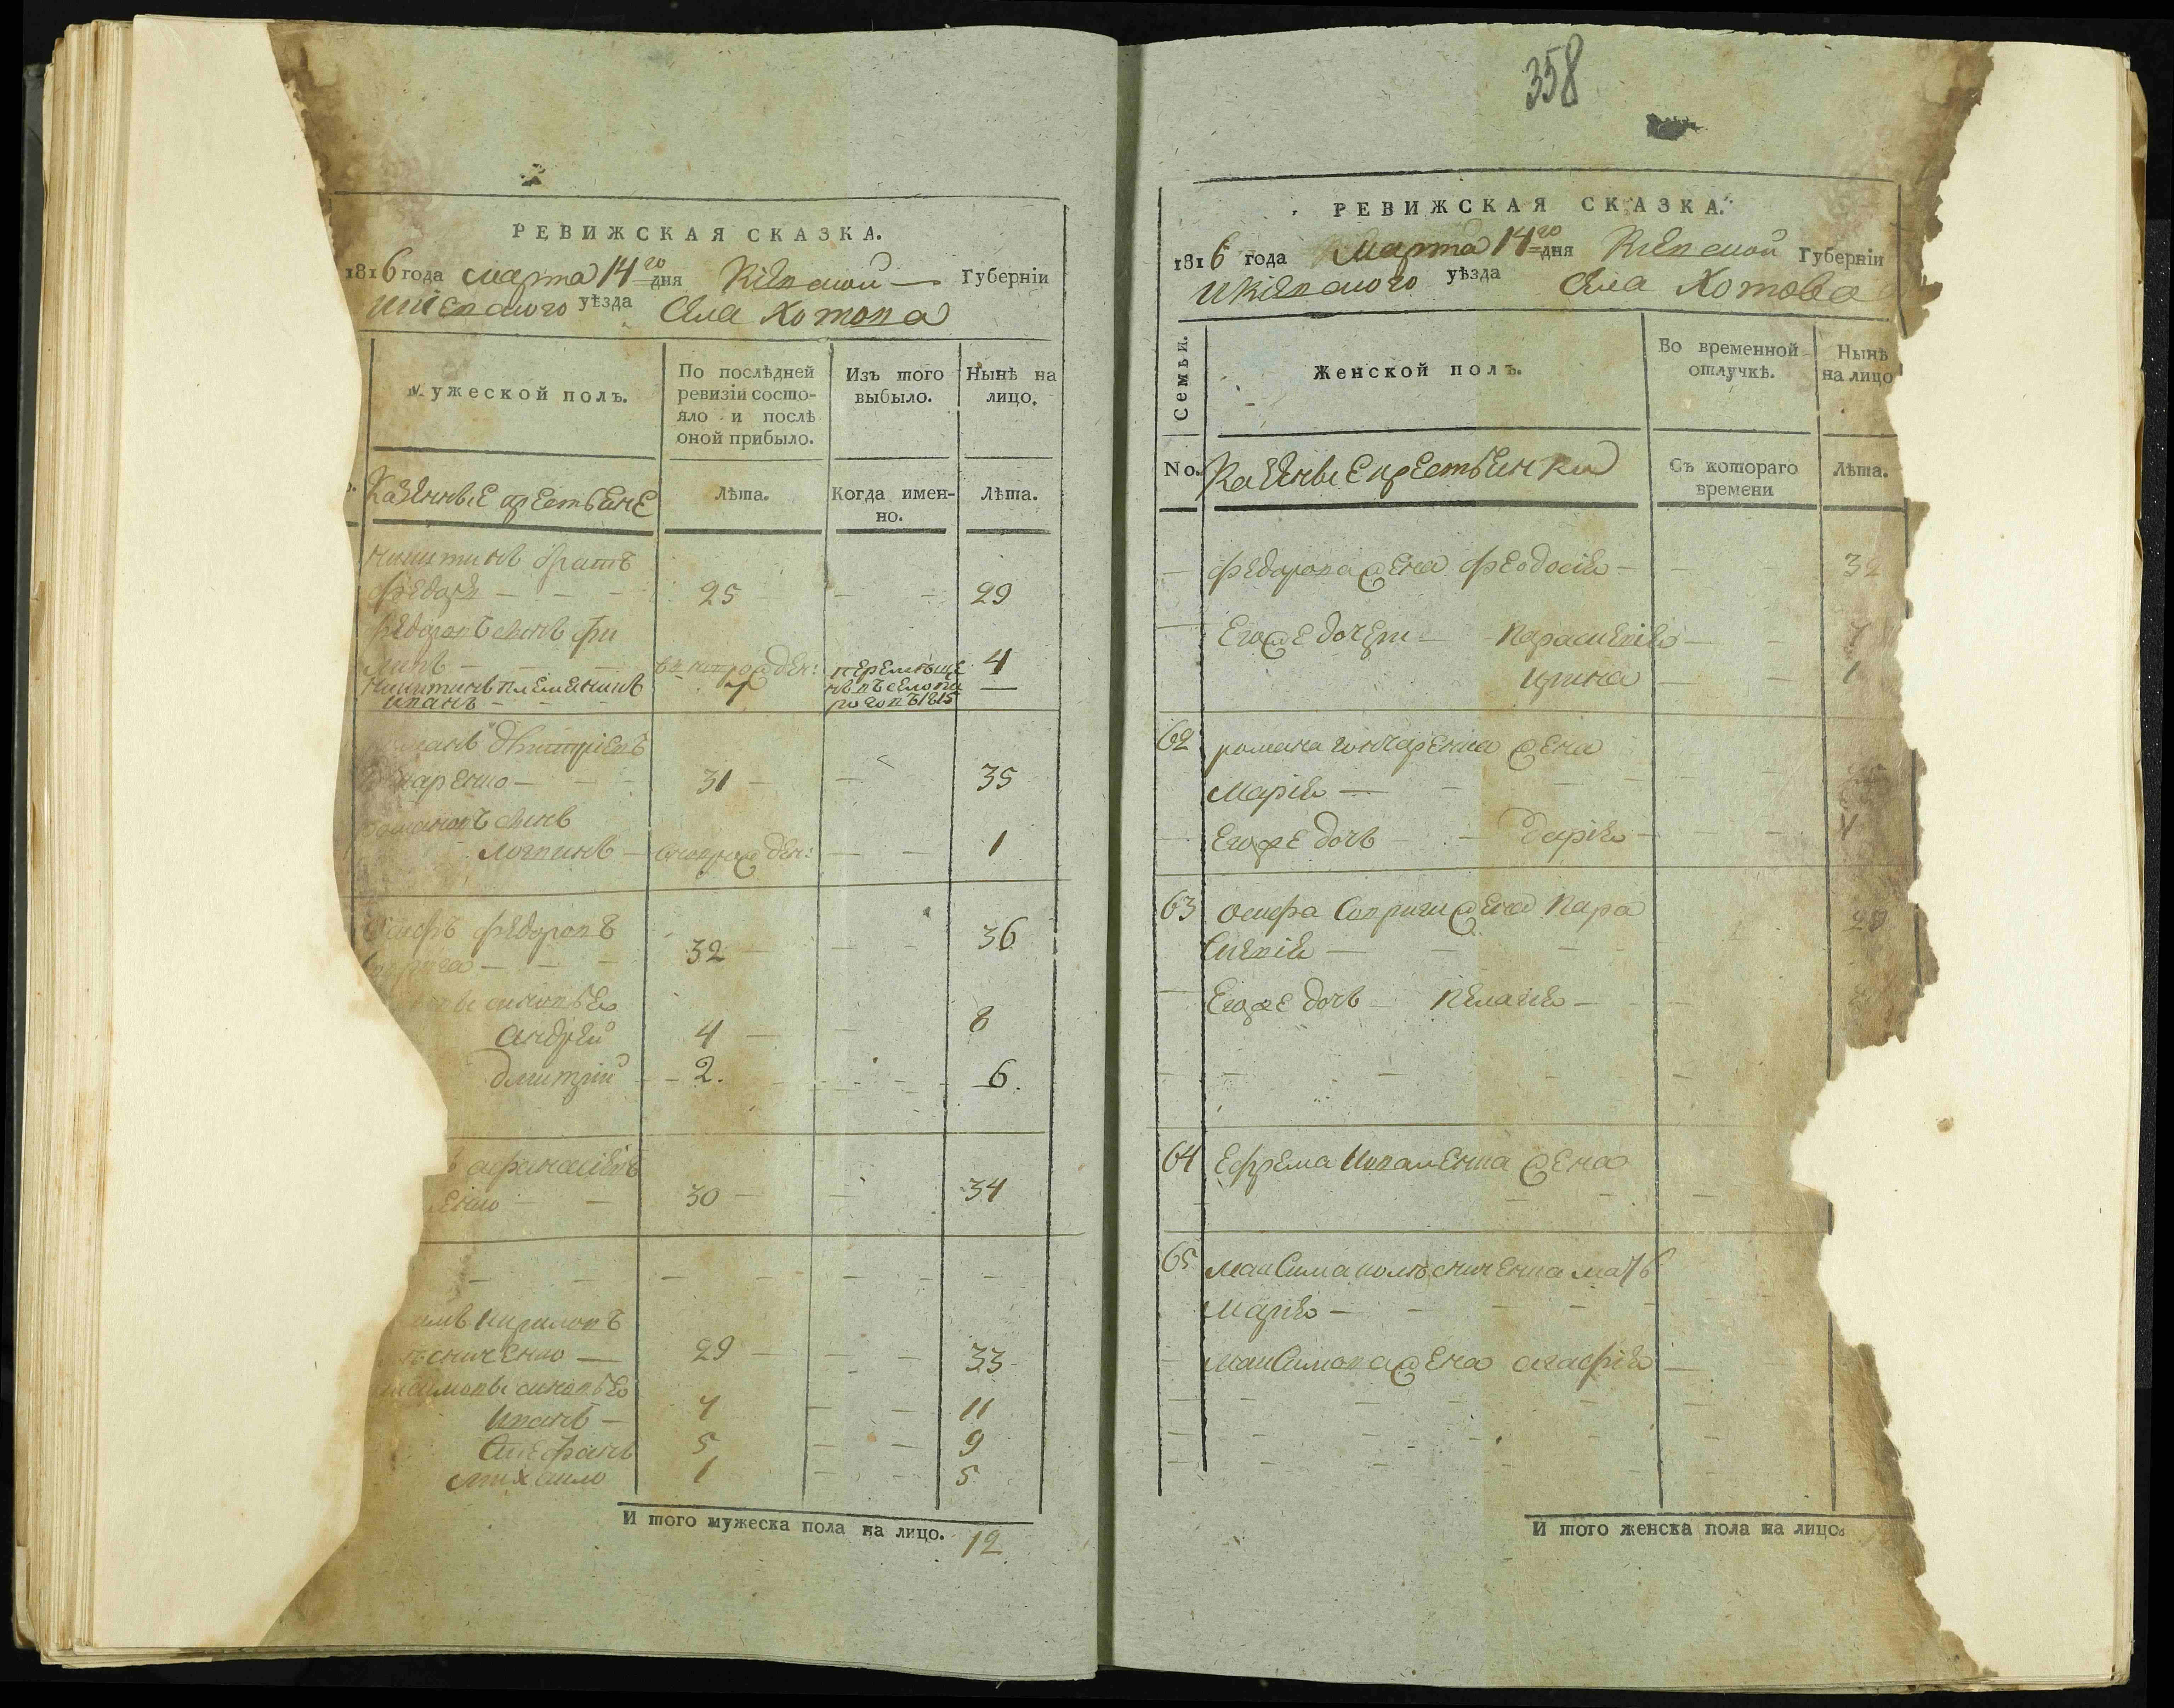 РЕВИЖСКАЯ СКАЗКА.
1816 года марта 14го дня Киевской Губернїи
Киевского уѣзда Села Хотова
Мужеской полъ.
По послѣдней ревизїи состояло и послѣ оной прибыло.
Изъ того выбыло.
Нынѣ на лицо.
Казенные крестьяне
Лѣта.
Когда именно.
Лѣта.
никитинъ братъ
Федоръ — 25 — 29
Федоровъ сынъ Фи
липъ — новорожден: 4
никитинъ племенникъ
иванъ — перемѣще
въ 1815
романъ дмитрїевъ
31 — 35
романовъ сынъ
логвинъ — новорожден: — 1
Осифъ федоровъ
32 — 36
синовья
андрей 4 — 8
дмитрий 2. — 6.
афанасїевъ
30 — 34
кириловъ
сниченко — 29 — 33
синовья
иванъ — 7 — 11
Стефанъ 5 — 9
михайло 1 — 5
И того мужеска пола на лицо. 12
358
РЕВИЖСКАЯ СКАЗКА.
1816 года Марта 14го дня Киевской Губернїи
Киевского уѣзда Села Хотова
Семьи.
Женской полъ.
Во временной отлучкѣ.
Нынѣ на лицо
No.
Казенные крестьянки
Съ котораго времени
Лѣта.
Федорова жена феодосїя — 32
Егоже дочери — Параскевїя — 7
ирина — 1
62 романа гончаренка жена
Марїя —
Егоже дочь — дарїя —
63 осифа Соприги жена Пара
скевїя —
Егоже дочь Пелагїя —
64 Ефрема коваленка жена
65 максима колѣсниченка мать
марїя —
максимова жена агафїя —
И того женска пола на лицо.